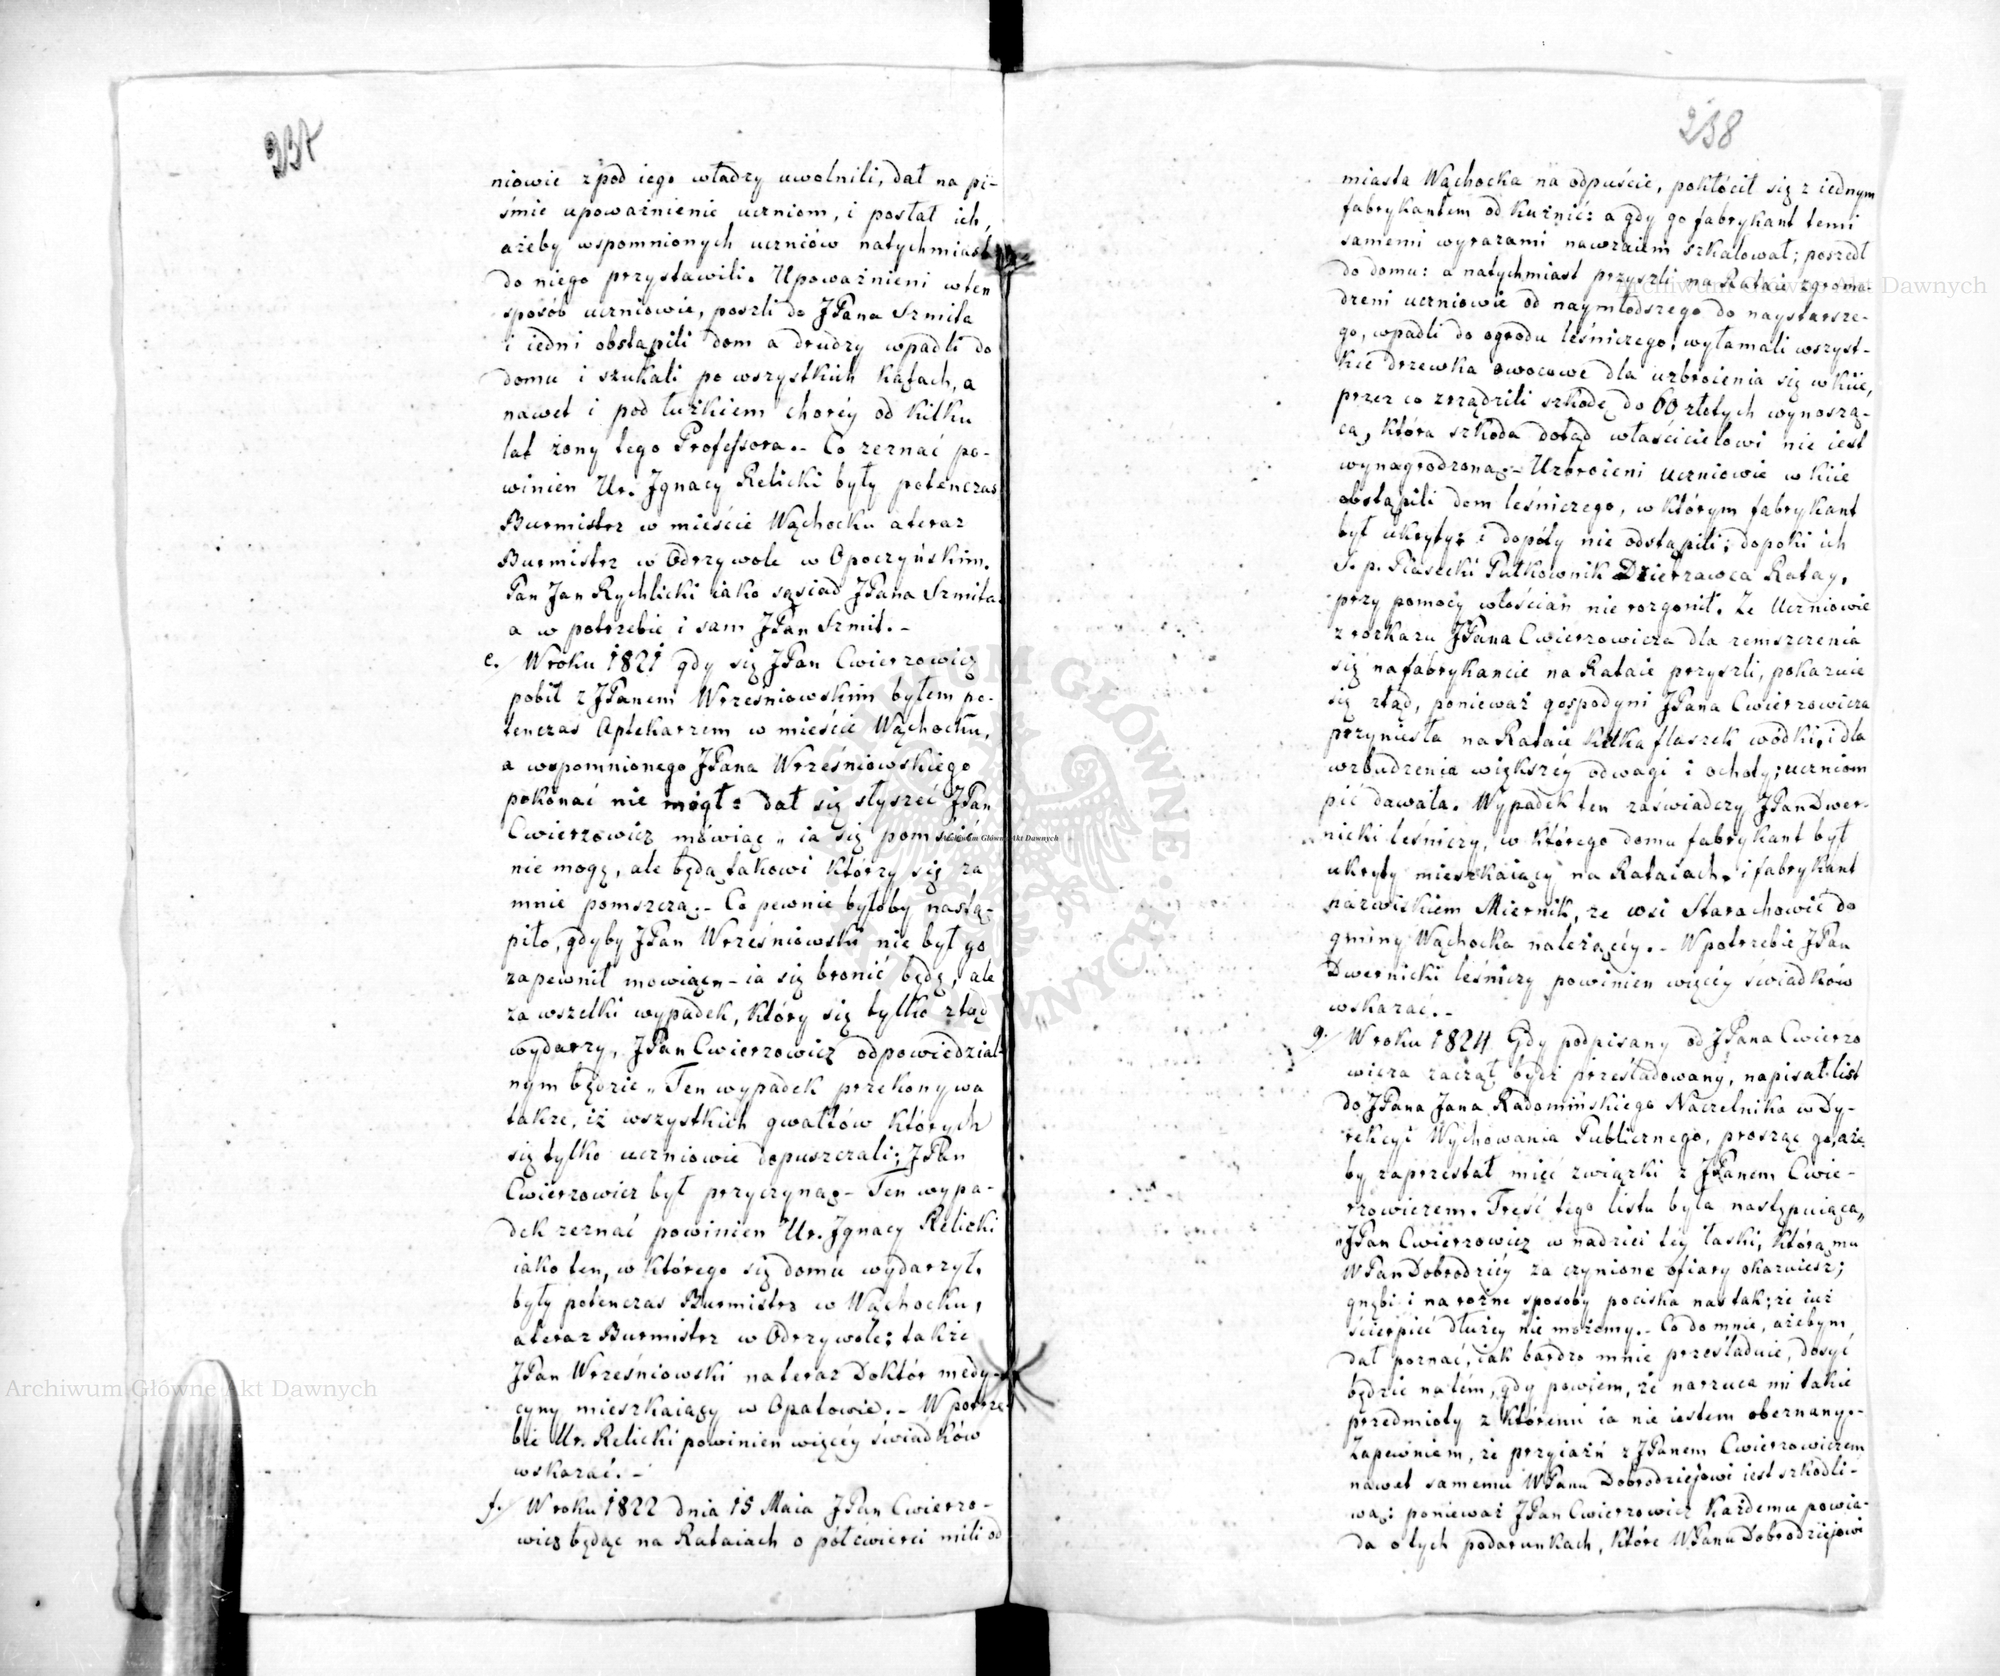 237
niowie zpod iego władzy uwolnili, dał na pi-
śmie upoważnienie uczniom, i posłał ich,
ażeby wspomnionych uczniów natychmiast
do niego przystawili. Upoważnieni wten
sposób uczniowie, poszli do JPana Szmita
i iedni obstąpili dom a drudzy wpadli do
domu i szukali po wszystkich kątach, a
nawet i pod łużkiem choréy od kilku
lat żony tego Professora.- Co zeznać po-
winien Ur. Jgnacy Relicki były potenczas
Burmistrz w mieście Wąchocku a teraz
Burmistrz w Odrzywole w Opoczyńskim.
Pan Jan Rychlicki iako sąsiad JPana Szmita.
a w potrzebie i sam JPan Szmit.-
e./ W roku 1821 gdy się JPan Cwierzowicz
pobił z JPanem Wrześniowskim byłem po-
tenczas Aptekarzem w mieście Wąchocku,
a wspomnionego JPana Wrześniowskiego
pokonać nie mógł: dał się słyszeć JPan
Cwierzowicz mówiąc „ ia się pomścić
nie mogę, ale będą takowi którzy się za
mnie pomszczą.- Co pewnie byłoby nastą-
piło, gdyby JPan Wrześniowski nie był go
zapewnił mowiąc „- ia się bronić będę, ale
za wszelki wypadek, który się tylko ztąd
wydarzy, JPan Cwierzowicz odpowiedzial-
nym będzie „ Ten wypadek przekonywa
także, iż wszystkich gwałtów których
się tylko uczniowie dopuszczali; JPan
Cwierzowicz był przyczyną.- Ten wypa-
dek zeznać powinien Ur. Jgnacy Relicki
iako ten, w którego się domu wydarzył.
były potenczas Burmistrz w Wąchocku,
a teraz Burmistrz w Odrzywole; także
JPan Wrześniowski na teraz Doktór medy-
cyny mieszkaiący w Opatowie.- W potrze-
bie Ur. Relicki powinien więcéy świadków
wskazać.-
f./ W roku 1822 dnia 15 Maia JPan Cwierzo-
wicz będąc na Rataiach o półćwierci mili od
238
miasta Wąchocka na odpuście, pokłócił się z iednym
fabrykantem od kuźnic: a gdy go fabrykant temi
samemi wyrazami nawzaiem szkalował; poszedł
do domu: a natychmiast przyszli na Rataie zgroma-
dzeni uczniowie od naymłodszego do naystarsze-
go, wpadli do ogrodu leśniczego, wyłamali wszyst-
kie drzewka owocowe dla uzbroienia się w kiie,
przez co zrządzili szkodę do 60 złotych wynoszą-
cą, która szkoda dotąd właścicielowi nie iest
wynagrodzoną.- Uzbroieni uczniowie w kiie
obstąpili dom leśniczego, w którym fabrykant
był ukryty: i dopóty nie odstąpili; dopoki ich
S. p. Piasecki Pułkownik Dzierzawca Ratay,
przy pomocy włościan nie rozgonił. Ze Uczniowie
z rozkazu JPana Cwierzowicza dla zemszczenia
się na fabrykancie na Rataie przyszli, pokazuie
się ztąd, ponieważ gospodyni JPana Cwierzowicza
przyniesła na Rataie kilka flaszek wodki, i dla
wzbudzenia większéy odwagi i ochoty; uczniom
pić dawała. Wypadek ten zaświadczy JPan Dwer-
nicki leśniczy, w którego domu fabrykant był
ukryty mieszkaiący na Rataiach, i fabrykant
nazwiskiem Miernik, ze wsi Starachowic do
gminy Wąchocka należącéy.- W potrzebie JPan
Dwernicki leśniczy powinien więcéy swiadków
wskazać.-
g./ W roku 1824 Gdy podpisany od JPana Cwierzo
wicza zaczął bydź prześladowany, napisał list
do JPana Jana Radomińskiego Naczelnika w Dy-
rekcyi Wychowania Publicznego, prosząc go, aże-
by zaprzestał mieć związki z JPanem Cwie-
rzowiczem. Treść tego listu była następuiąca „
„JPan Cwierzowicz w nadziei tey łaski, którą mu
WPan Dobrodziéy za czynione ofiary okazuiesz;
gnębi i na rożne sposoby pociska nas tak; że iuż
ścierpieć dłużey nie możemy.- Co do mnie, ażebym
dał poznać, iak bardzo mnie prześladuie, dosyć
będzie na tém, gdy powiem, że narzuca mi takie
przedmioty z któremi ia nie iestem obeznany.-
Zapewniam, że przyiaźń z JPanem Cwierzowiczem
nawet samemu WPanu Dobrodziejowi iest szkodli-
wą: ponieważ JPan Cwierzowicz każdemu powia-
da o tych podarunkach, które WPanu Dobrodziejowi
Archiwum Główne Akt Dawnych
Archiwum Główne Akt Dawnych
Archiwum Główne Akt Dawnych
ARCHIWUM GŁÓWNE AKT DAWNYCH